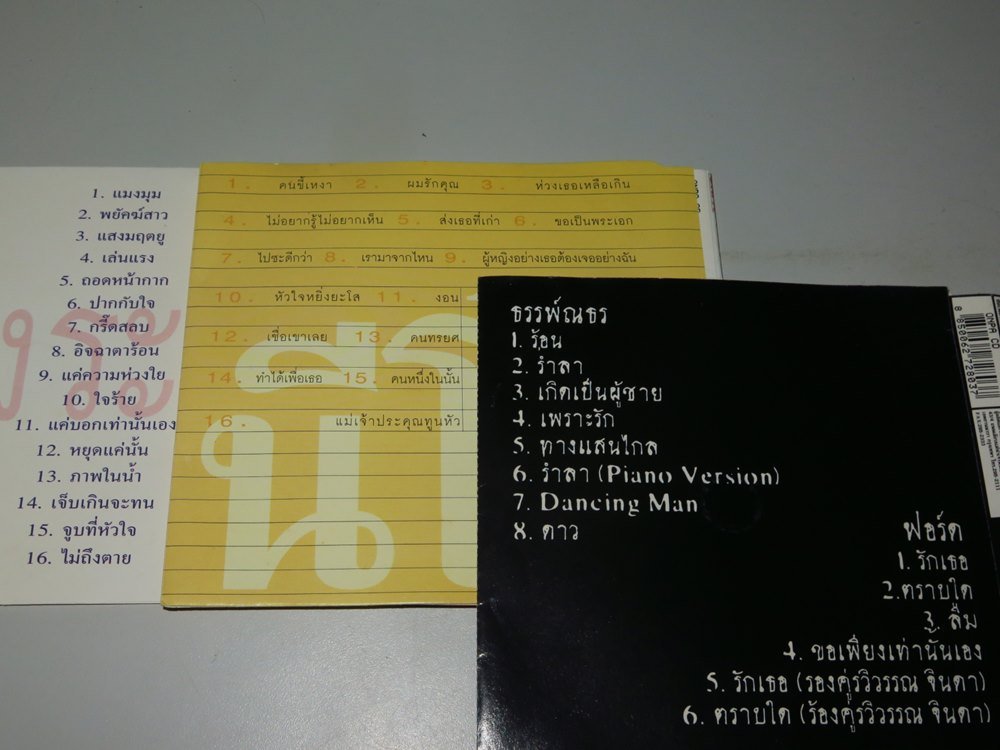 1. แมงมุม
2. พยัคฆ์สาว
3. แสงมฤตยู
4. เล่นแรง
5. ถอดหน้ากาก
6. ปากกับใจ
7. กรี๊ดสลบ
8. อิจฉาตาร้อน
9. แค่ความห่วงใย
10. ใจร้าย
11. แค่บอกเท่านั้นเอง
12. หยุดแค่นั้น
13. ภาพในน้ำ
14. เจ็บเกินจะทน
15. จูบที่หัวใจ
16. ไม่ถึงตาย
1. คนขี้เหงา 2. ผมรักคุณ 3. ห่วงเธอเหลือเกิน
4. ไม่อยากรู้ไม่อยากเห็น 5. ส่งเธอที่เก่า 6. ขอเป็นพระเอก
7. ไปซะดีกว่า 8. เรามาจากไหน 9. ผู้หญิงอย่างเธอต้องเจออย่างฉัน
10. หัวใจหยิ่งยะโส 11. งอน
12. เชื่อเขาเลย 13. คนทรยศ
14. ทำได้เพื่อเธอ 15. คนหนึ่งในนั้น
16. แม่เจ้าประคุณทูนหัว
ธรรพ์ณธร
1. ร้อน
2. รำลา
3. เกิดเป็นผู้ชาย
4. เพราะรัก
5. ทางแสนไกล
6. รำลา (Piano Version)
7. Dancing Man
8. ดาว
ฟอร์ด
1. รักเธอ
2. ตราบใด
3. ลืม
4. ขอเพียงเท่านั้นเอง
5. รักเธอ (รองคู่รวิวรรณ จินดา)
6. ตราบใด (ร้องคู่รวิวรรณ จินดา)
8 850062 728037